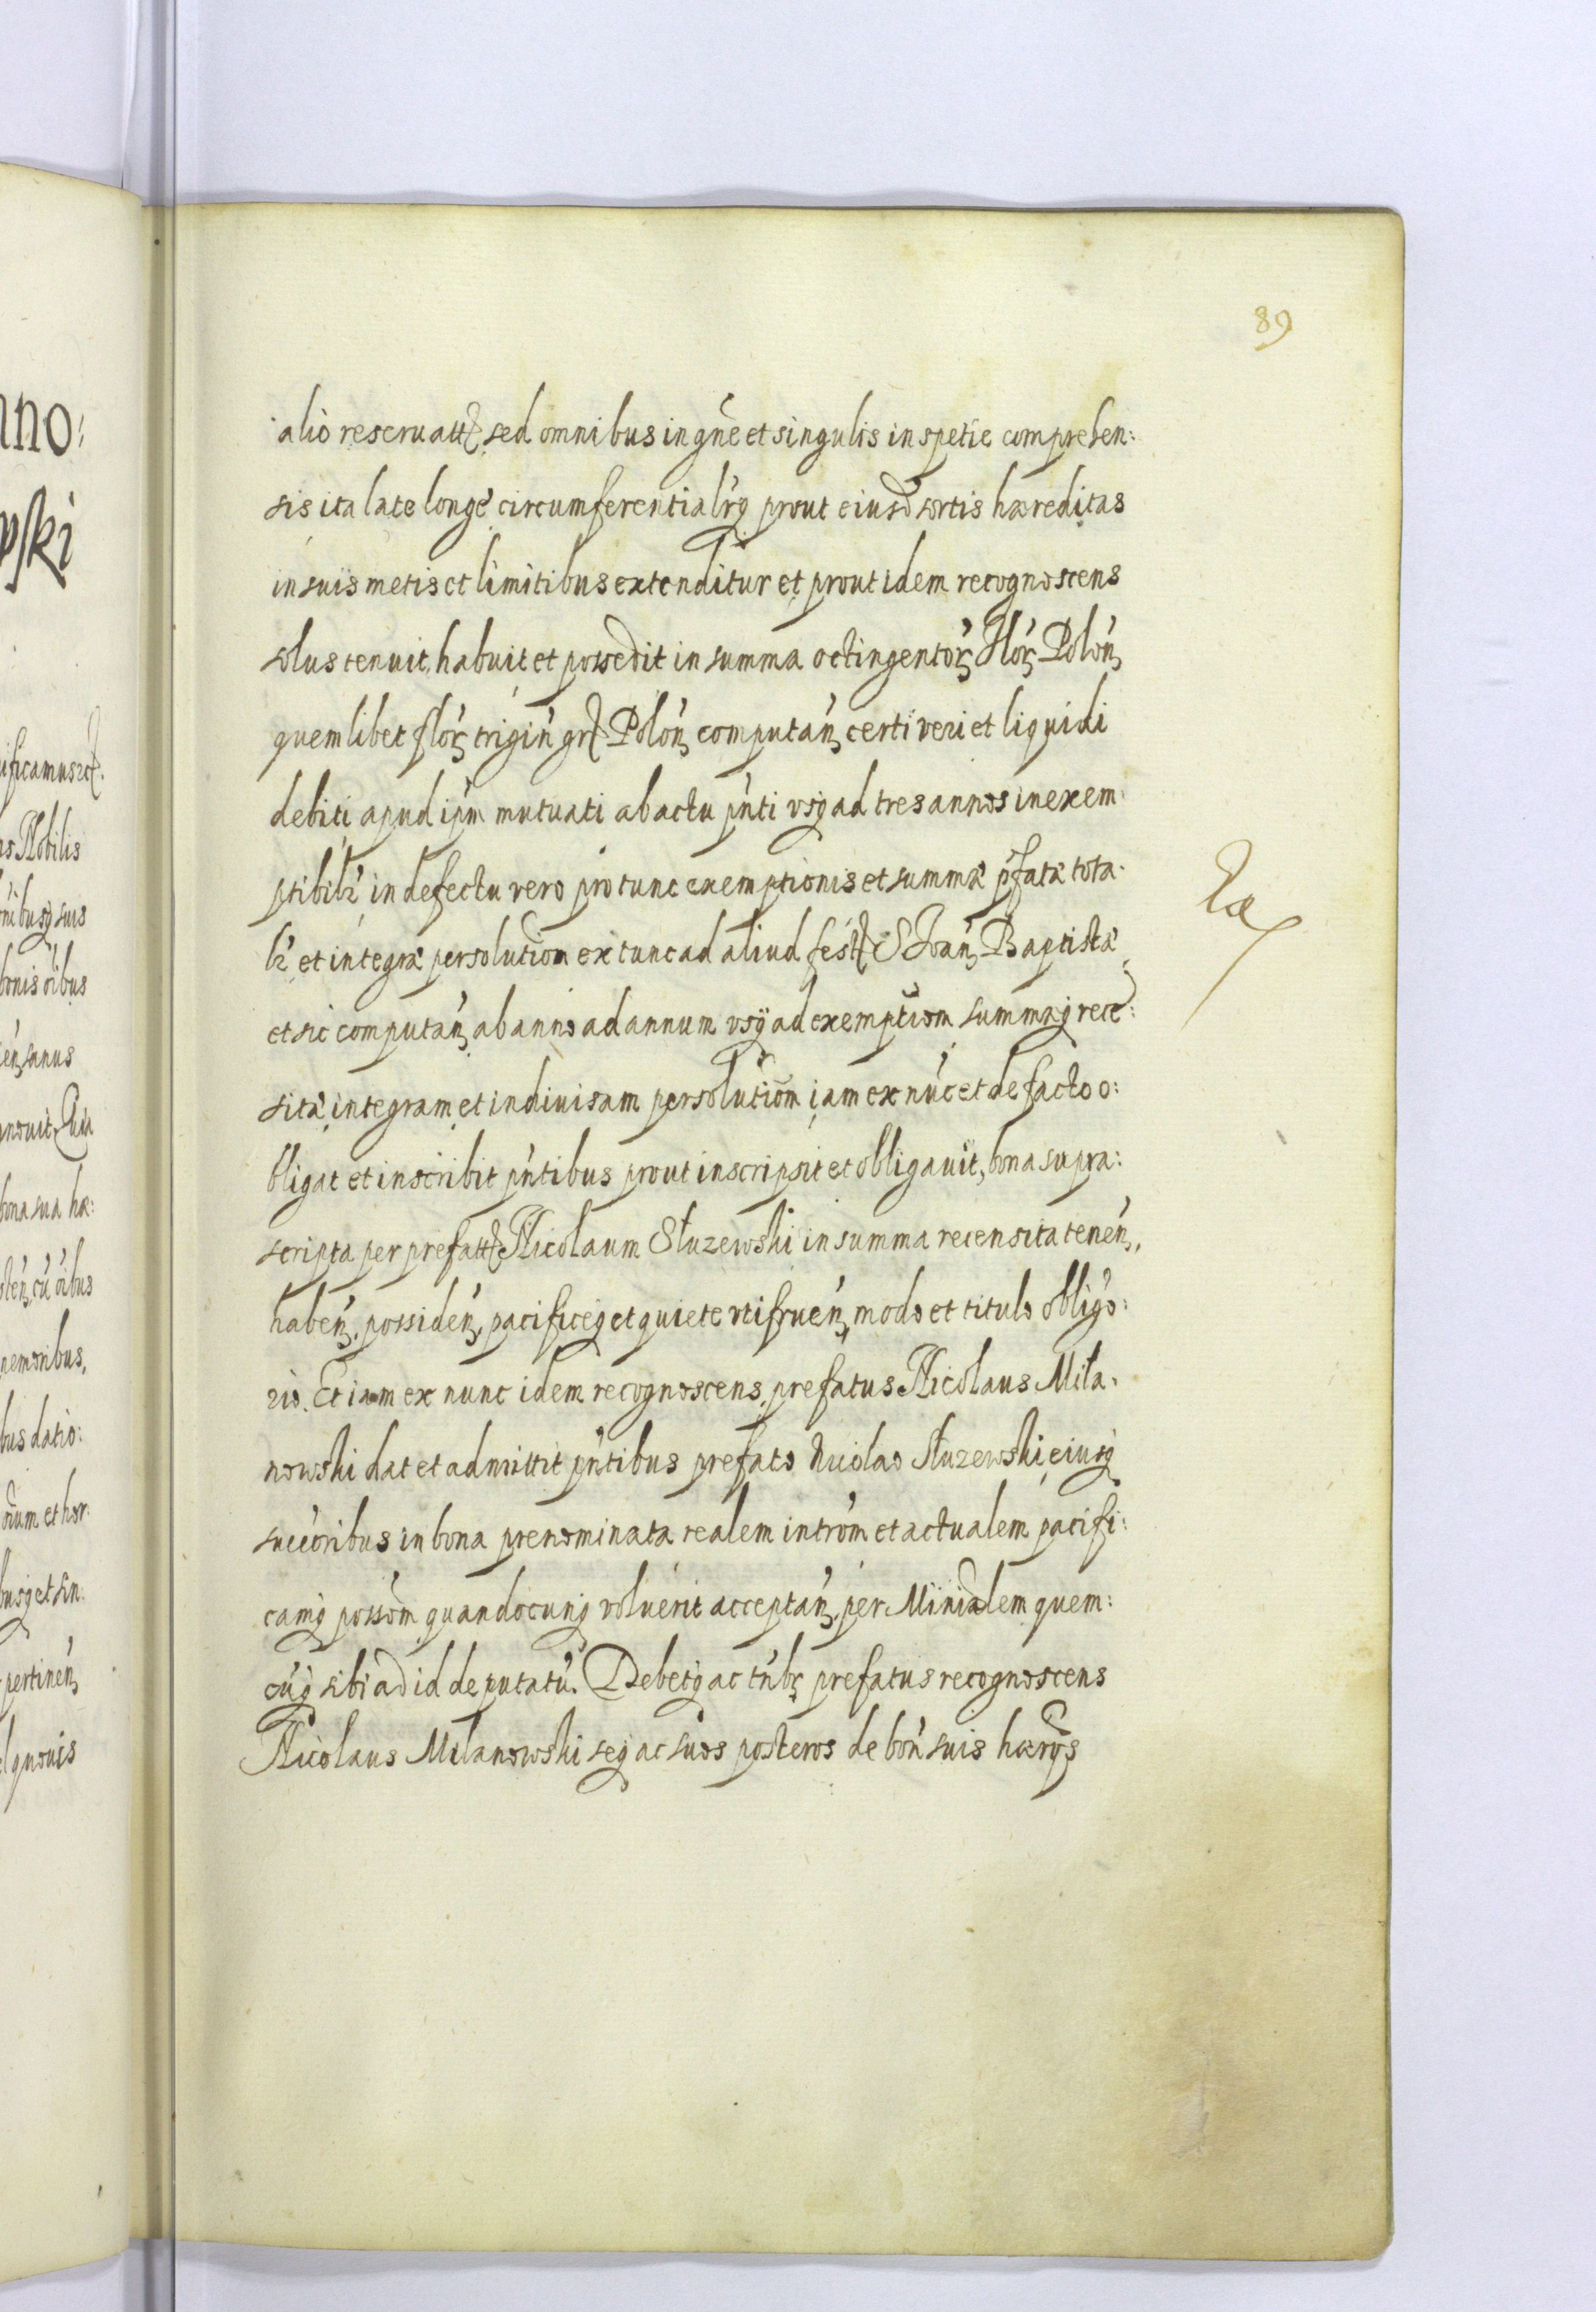 89
alio reseruatt, sed omnibus in gne et singulis in spetie comprehen:
sis ita late longe circumferentialrq prout eiusd sortis haereditas
in suis metis et limitibus extenditur et prout idem recognoscens
solus tenuit, habuit et possedit in summa octingentor Flor Polon
quemlibet flor trigin gr Polon computan certi veri et liquidi
debiti apud ipm mutuati ab actu pnti vsq ad tres annos inexem:
ptibilr in defectu vero pro tunc exemptionis et summae pfatae tota:
lr et integrae persolution ex tunc ad aliud fest S Joan Baptistae
et sic computan ab anno ad annum vsq ad exemptiom summaq rece:
sitae integram et indiuisam persolutiom iam ex nuc et de facto o:
bligat et inscribit pntibus prout inscripsit et obligauit, bona supra:
scripta per prefatt Nicolaum Służewski in summa recensita tenen,
haben, possiden, pacificeq et quiete vtifruen modo et titulo obligo:
rio. Et iam ex nunc idem recognoscens prefatus Nicolaus Miła:
nowski dat et admittit pntibus prefato Nicolao Służewski eiusq
succoribus in bona prenominata realem introm et actualem pacifi:
camq possom quandocunq voluerit acceptan, per Minialem quem:
cuq sibi ad id deputatu. Debetq ac tnbr prefatus recognoscens
Nicolaus Milanowski seq ac suos posteros de bon suis haerys